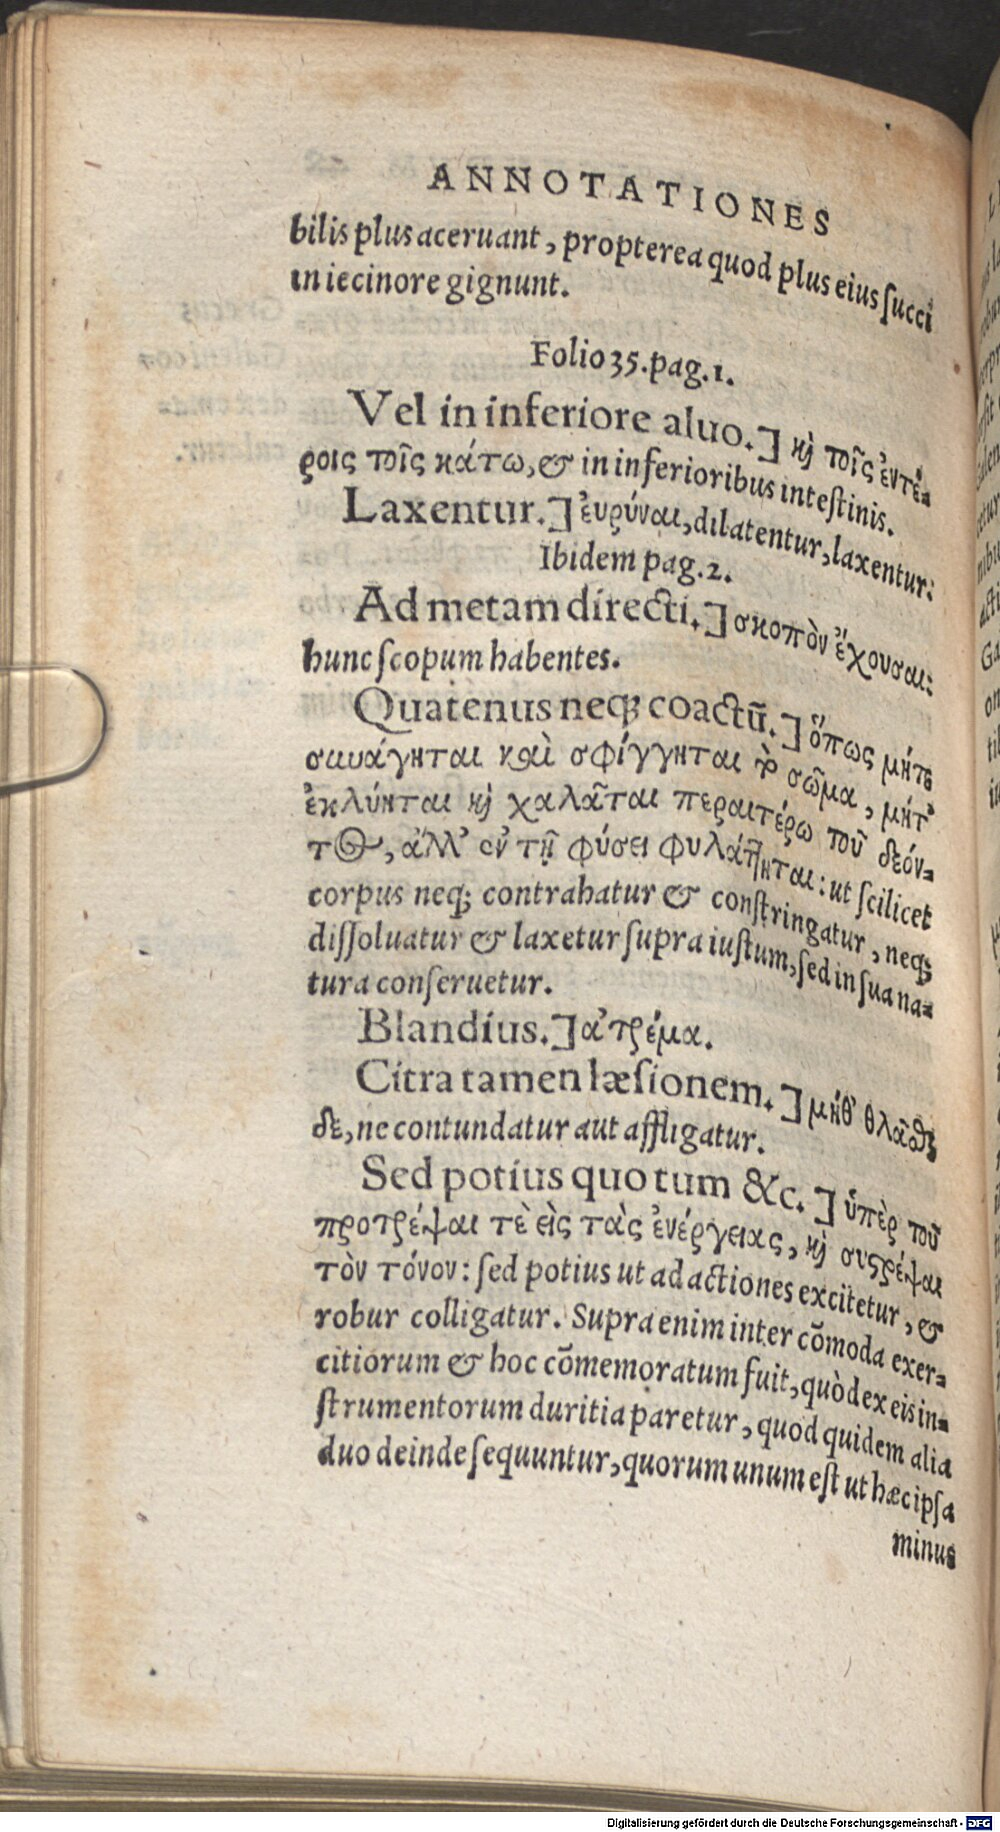 ANNOTATIONES
bilis plus aceruant, propterea quod plus eius ſucci
in iecinore gignunt.
Folio 35. pag. 1.
Vel in inferiore aluo.] κỳ τοῖς ἐντέ-
ροις τοῖς κάτω, & in inferioribus inteſtinis.
Laxentur.] ἐυρύναι, dilatentur, laxentur:
Ibidem pag. 2.
Ad metam directi.] σκοπὸν ἔχουσαι:
hunc ſcopum habentes.
Quatenus neq; coactū.] ὅπως μήτε
συνάγηται καὶ σφίγγηται τὸ σῶμα, μήτ'
ἐκλύηται καὶ χαλᾶται περαιτέρω τοῦ δεόν-
τος, ἀλλ' ἐν τῇ φύσει φυλάττηται: ut ſcilicet
corpus neq; contrahatur & conſtringatur, neq;
diſſoluatur & laxetur ſupra iuſtum, ſed in ſua na-
tura conſeruetur.
Blandius.] ἀτρέμα.
Citra tamen læſionem.] μήθ' θλᾶσθαι
δε, ne contundatur aut affligatur.
Sed potius quo tum &c.] ὑπὲρ τοῦ
προτρέψαι τὲ εἰς τὰς ἐνέργειας, καὶ συστρέψαι
τὸν τόνον: ſed potius ut ad actiones excitetur, &
robur colligatur. Supra enim inter cōmoda exer-
citiorum & hoc cōmemoratum fuit, quòd ex eis in-
ſtrumentorum duritia paretur, quod quidem alia
duo deinde ſequuntur, quorum unum eſt ut hæc ipſa
minus
Digitalisierung gefördert durch die Deutsche Forschungsgemeinschaft - DFG